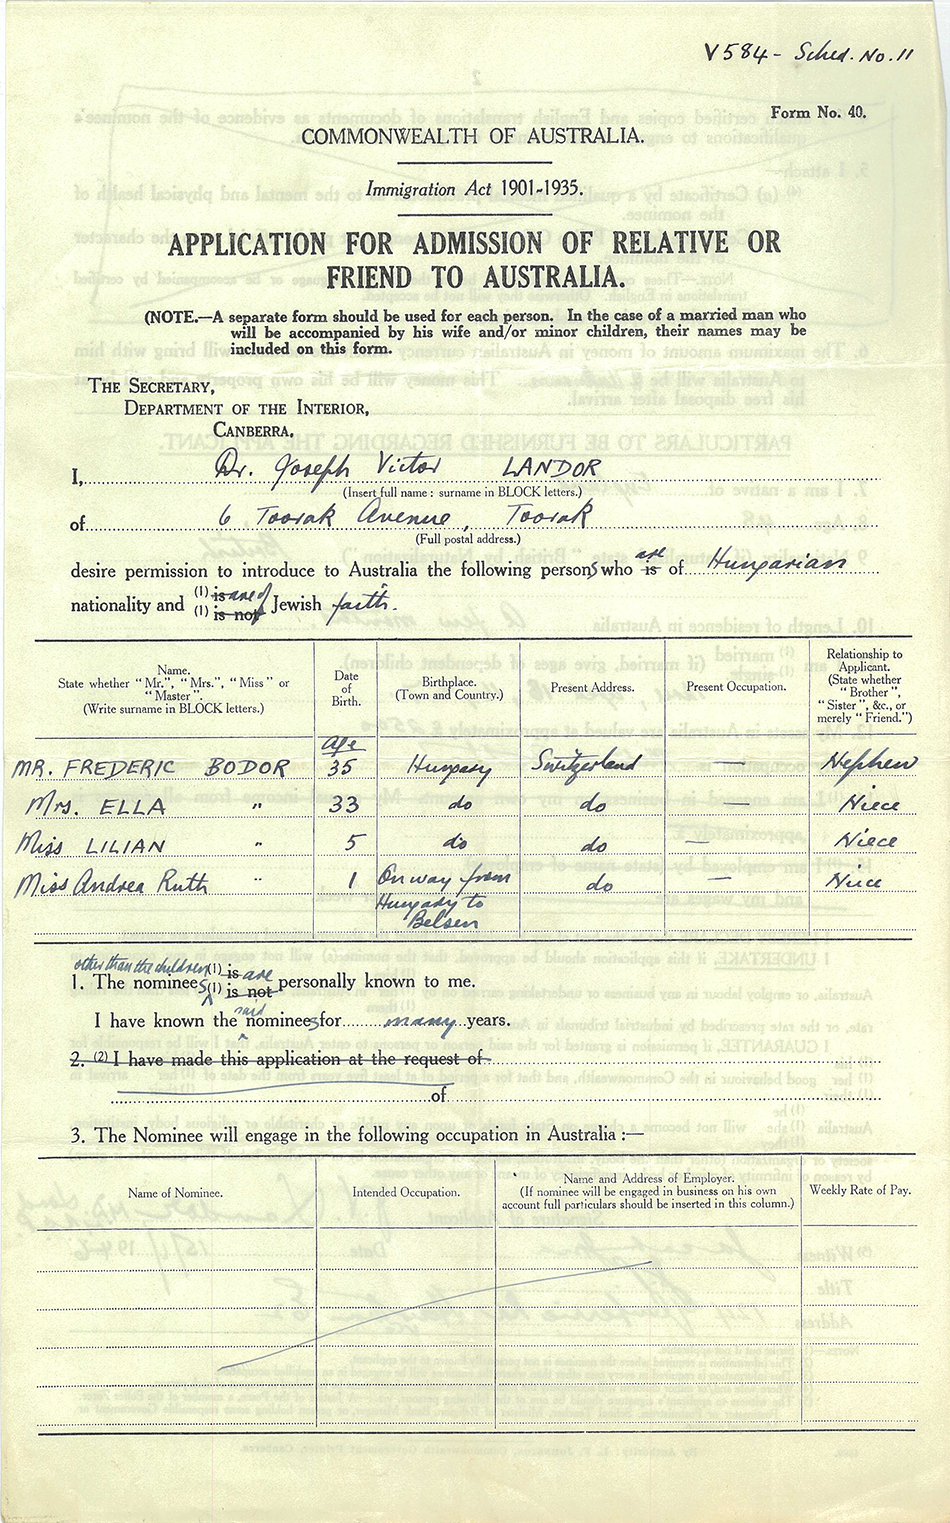 V584 - Sched. No. 11
Form No. 40.
COMMONWEALTH OF AUSTRALIA.
Immigration Act 1901-1935.
APPLICATION FOR ADMISSION OF RELATIVE OR
FRIEND TO AUSTRALIA.
(NOTE.—A separate form should be used for each person. In the case of a married man who
will be accompanied by his wife and/or minor children, their names may be
included on this form.
THE SECRETARY,
DEPARTMENT OF THE INTERIOR,
CANBERRA.
I, Dr. Joseph Victor LANDOR
(Insert full name: surname in BLOCK letters.)
of 6 Toorak Avenue, Toorak
(Full postal address.)
are
desire permission to introduce to Australia the following persons who is of Hungarian
nationality and (1) is are of
(1) is not Jewish faith.
Name.
State whether "Mr.", "Mrs.", "Miss" or
"Master".
(Write surname in BLOCK letters.)
Date
of
Birth.
Birthplace.
(Town and Country.)
Present Address.
Present Occupation.
Relationship to
Applicant.
(State whether
"Brother",
"Sister", &c., or
merely "Friend.")
age
MR. FREDERIC BODOR 35 Hungary Switzerland — Nephew
Mrs. ELLA " 33 do do — Niece
Miss LILIAN " 5 do do — Niece
Miss Andrea Ruth " 1 On way from do — Niece
Hungary to
Belsen
other than the children (1) is are
1. The nominees (1) is not personally known to me.
said
I have known the nominees for many years.
2. (2) I have made this application at the request of
of
3. The Nominee will engage in the following occupation in Australia :—
Name of Nominee.
Intended Occupation.
Name and Address of Employer.
(If nominee will be engaged in business on his own
account full particulars should be inserted in this column.)
Weekly Rate of Pay.